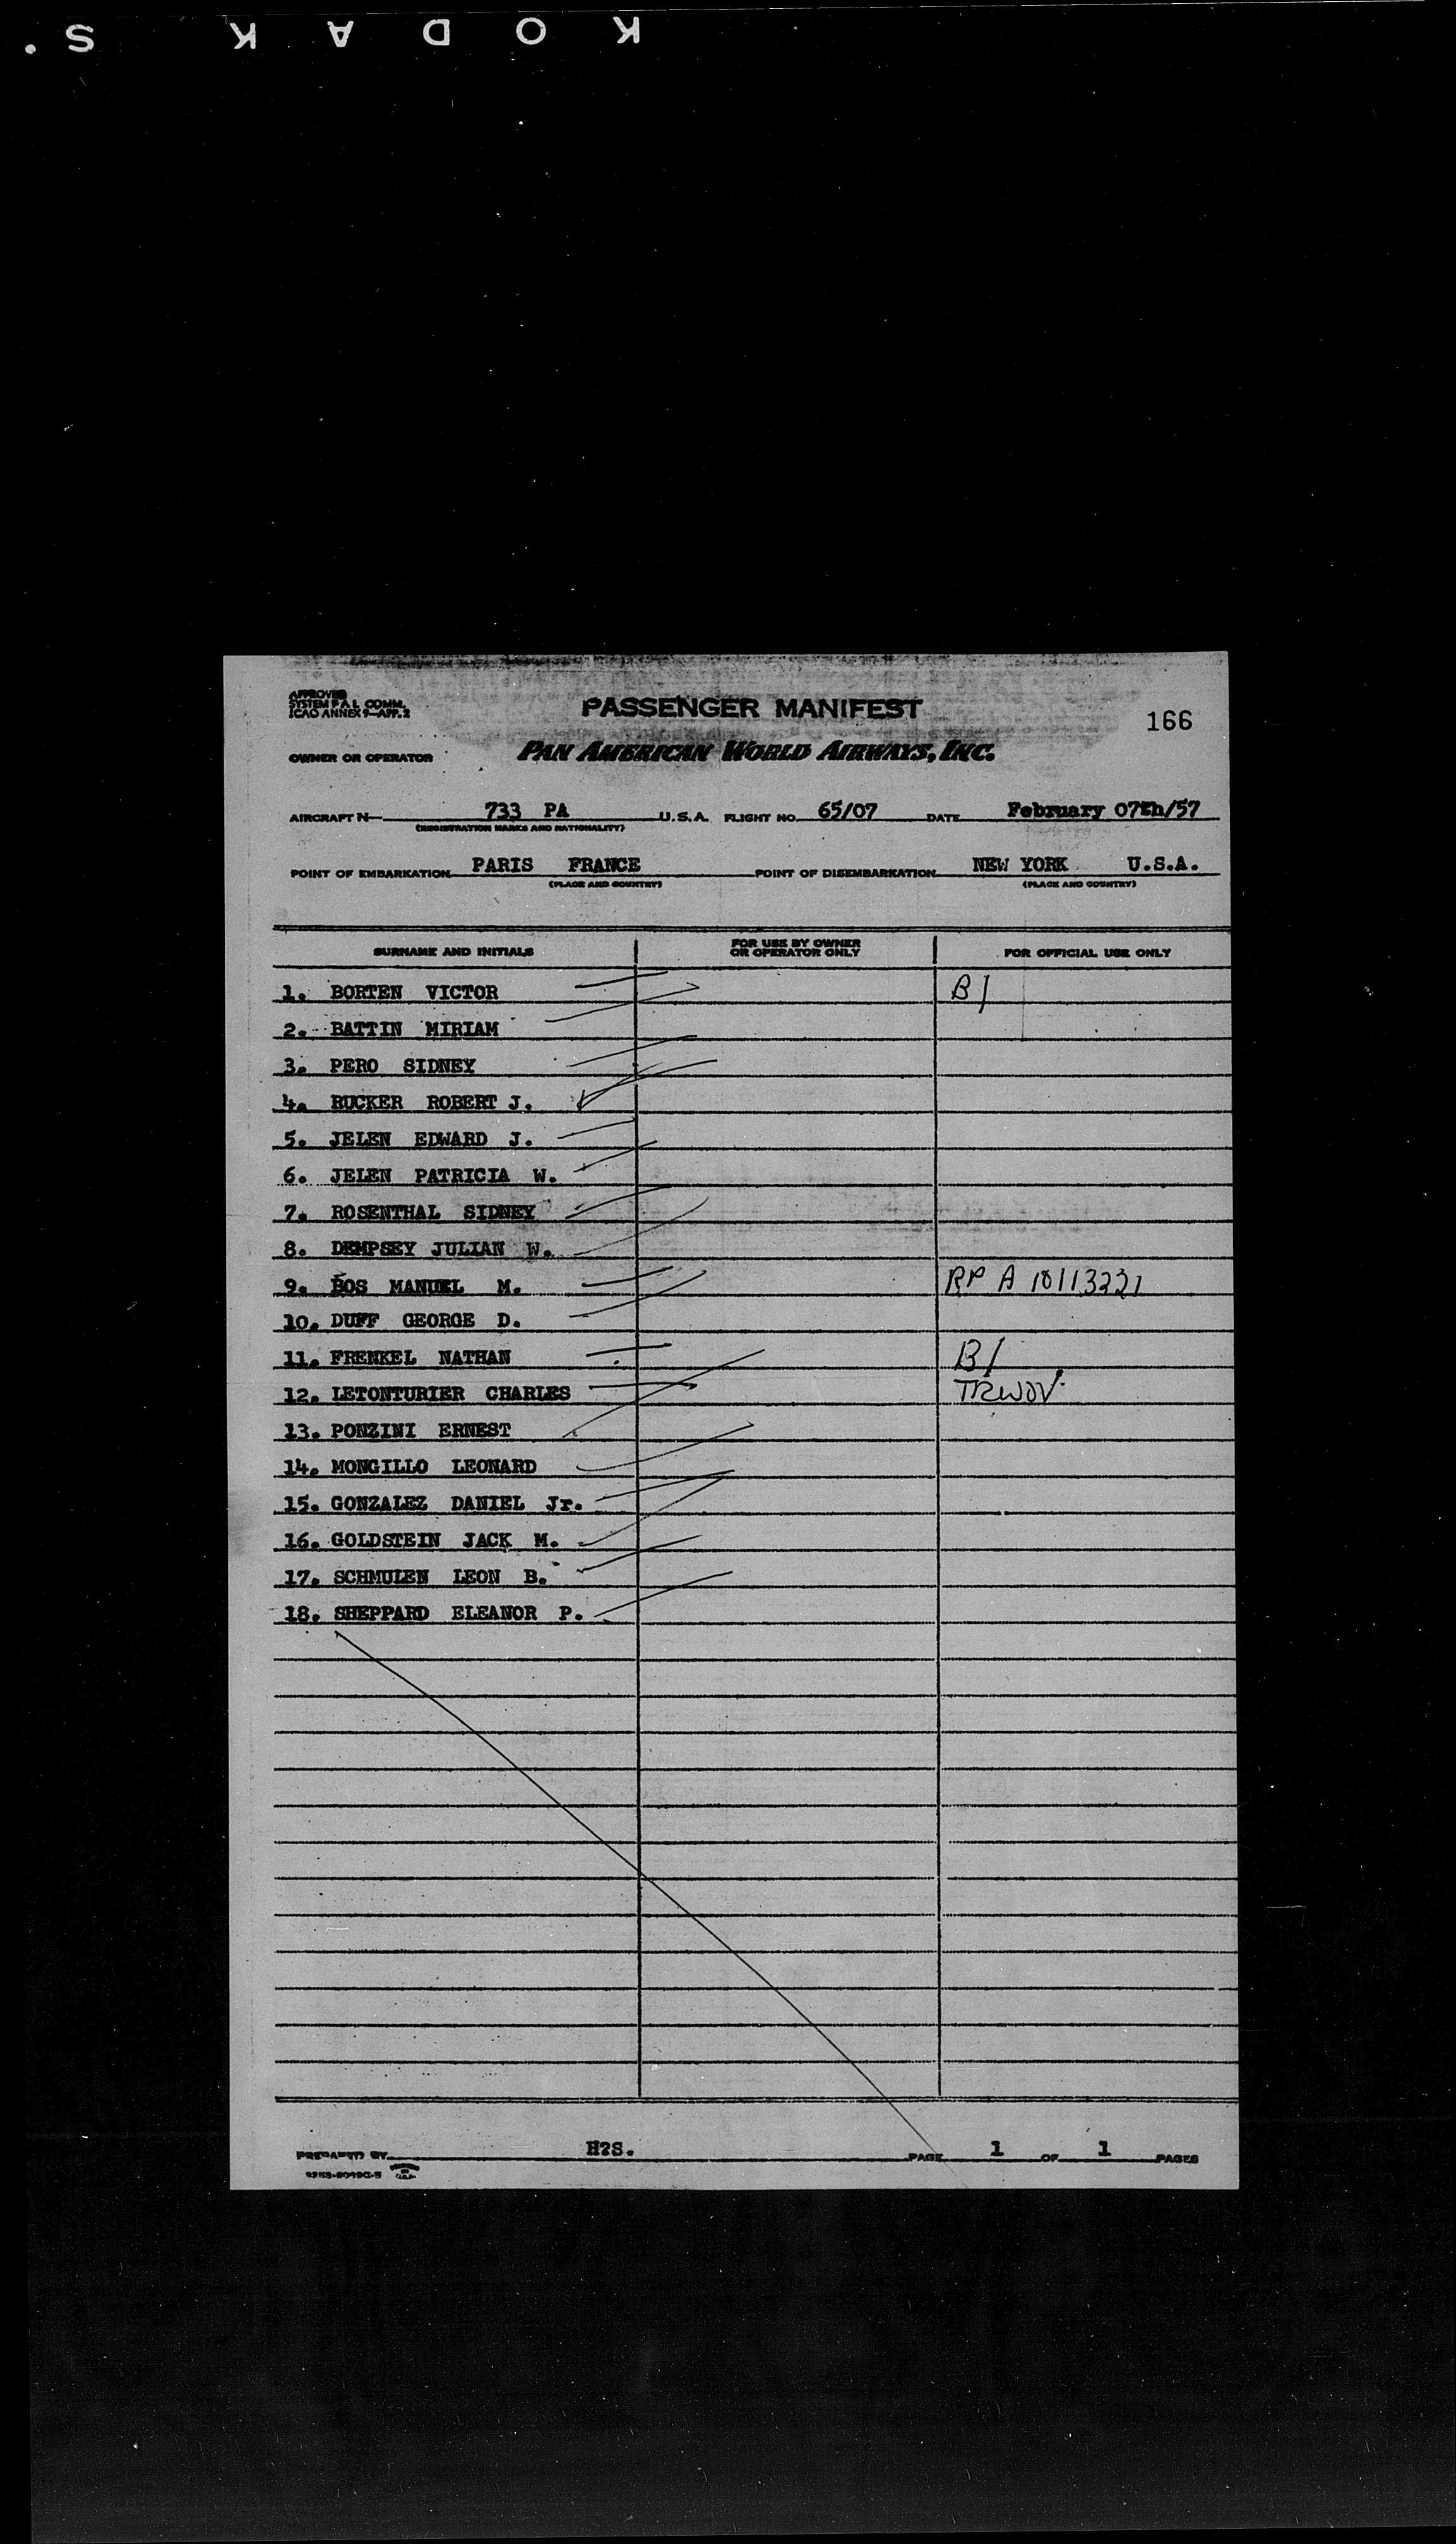 KODAK S.
APPROVED
SYSTEM P A L COMM.
ICAO ANNEX 9-APP. 2
PASSENGER MANIFEST
166
OWNER OR OPERATOR PAN AMERICAN WORLD AIRWAYS, INC.
AIRCRAFT N— 733 PA U.S.A. FLIGHT NO. 65/07 DATE February 07th/57
(REGISTRATION MARKS AND NATIONALITY)
POINT OF EMBARKATION PARIS FRANCE POINT OF DISEMBARKATION NEW YORK U.S.A.
(PLACE AND COUNTRY) (PLACE AND COUNTRY)
SURNAME AND INITIALS FOR USE BY OWNER OR OPERATOR ONLY FOR OFFICIAL USE ONLY
1. BORTEN VICTOR B/
2. BATTIN MIRIAM
3. PERO SIDNEY
4. RUCKER ROBERT J.
5. JELEN EDWARD J.
6. JELEN PATRICIA W.
7. ROSENTHAL SIDNEY
8. DEMPSEY JULIAN W.
9. BOS MANUEL M. RP A 10113231
10. DUFF GEORGE D.
11. FRENKEL NATHAN B/
12. LETONTURIER CHARLES TRWOV
13. PONZINI ERNEST
14. MONGILLO LEONARD
15. GONZALEZ DANIEL Jr.
16. GOLDSTEIN JACK M.
17. SCHMULEN LEON B.
18. SHEPPARD ELEANOR P.
PREPARED BY H?S. PAGE 1 OF 1 PAGES